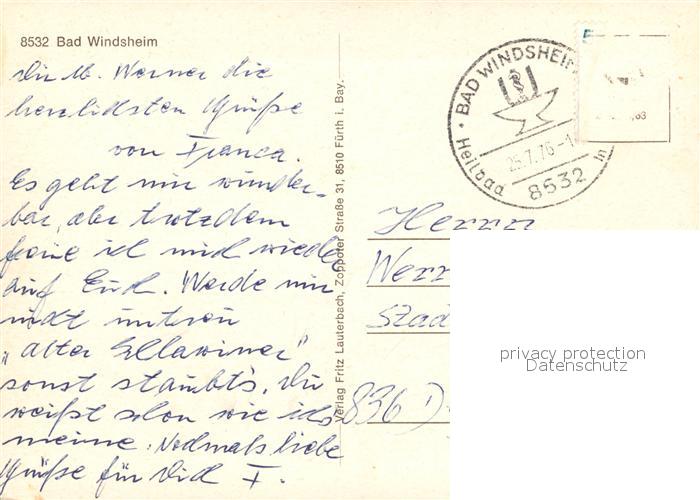 8532 Bad Windsheim
Dir lb. Werner die
herzlichsten Grüße
von Franca.
Es geht mir wunder-
bar, aber trotzdem
freue ich mich wieder
auf Euch. Werde mir
nicht untreu
"alter
sonst staubt's, Du
weißt schon wie ichs
meine. Nochmals liebe
Grüße für Dich F.
Verlag Fritz Lauterbach, Zoppoter Straße 31, 8510 Fürth i. Bay.
BAD WINDSHEIM
25.7.76-1
8532
Heilbad
In
Herrn
Wer
Stad
836 D
privacy protection
Datenschutz